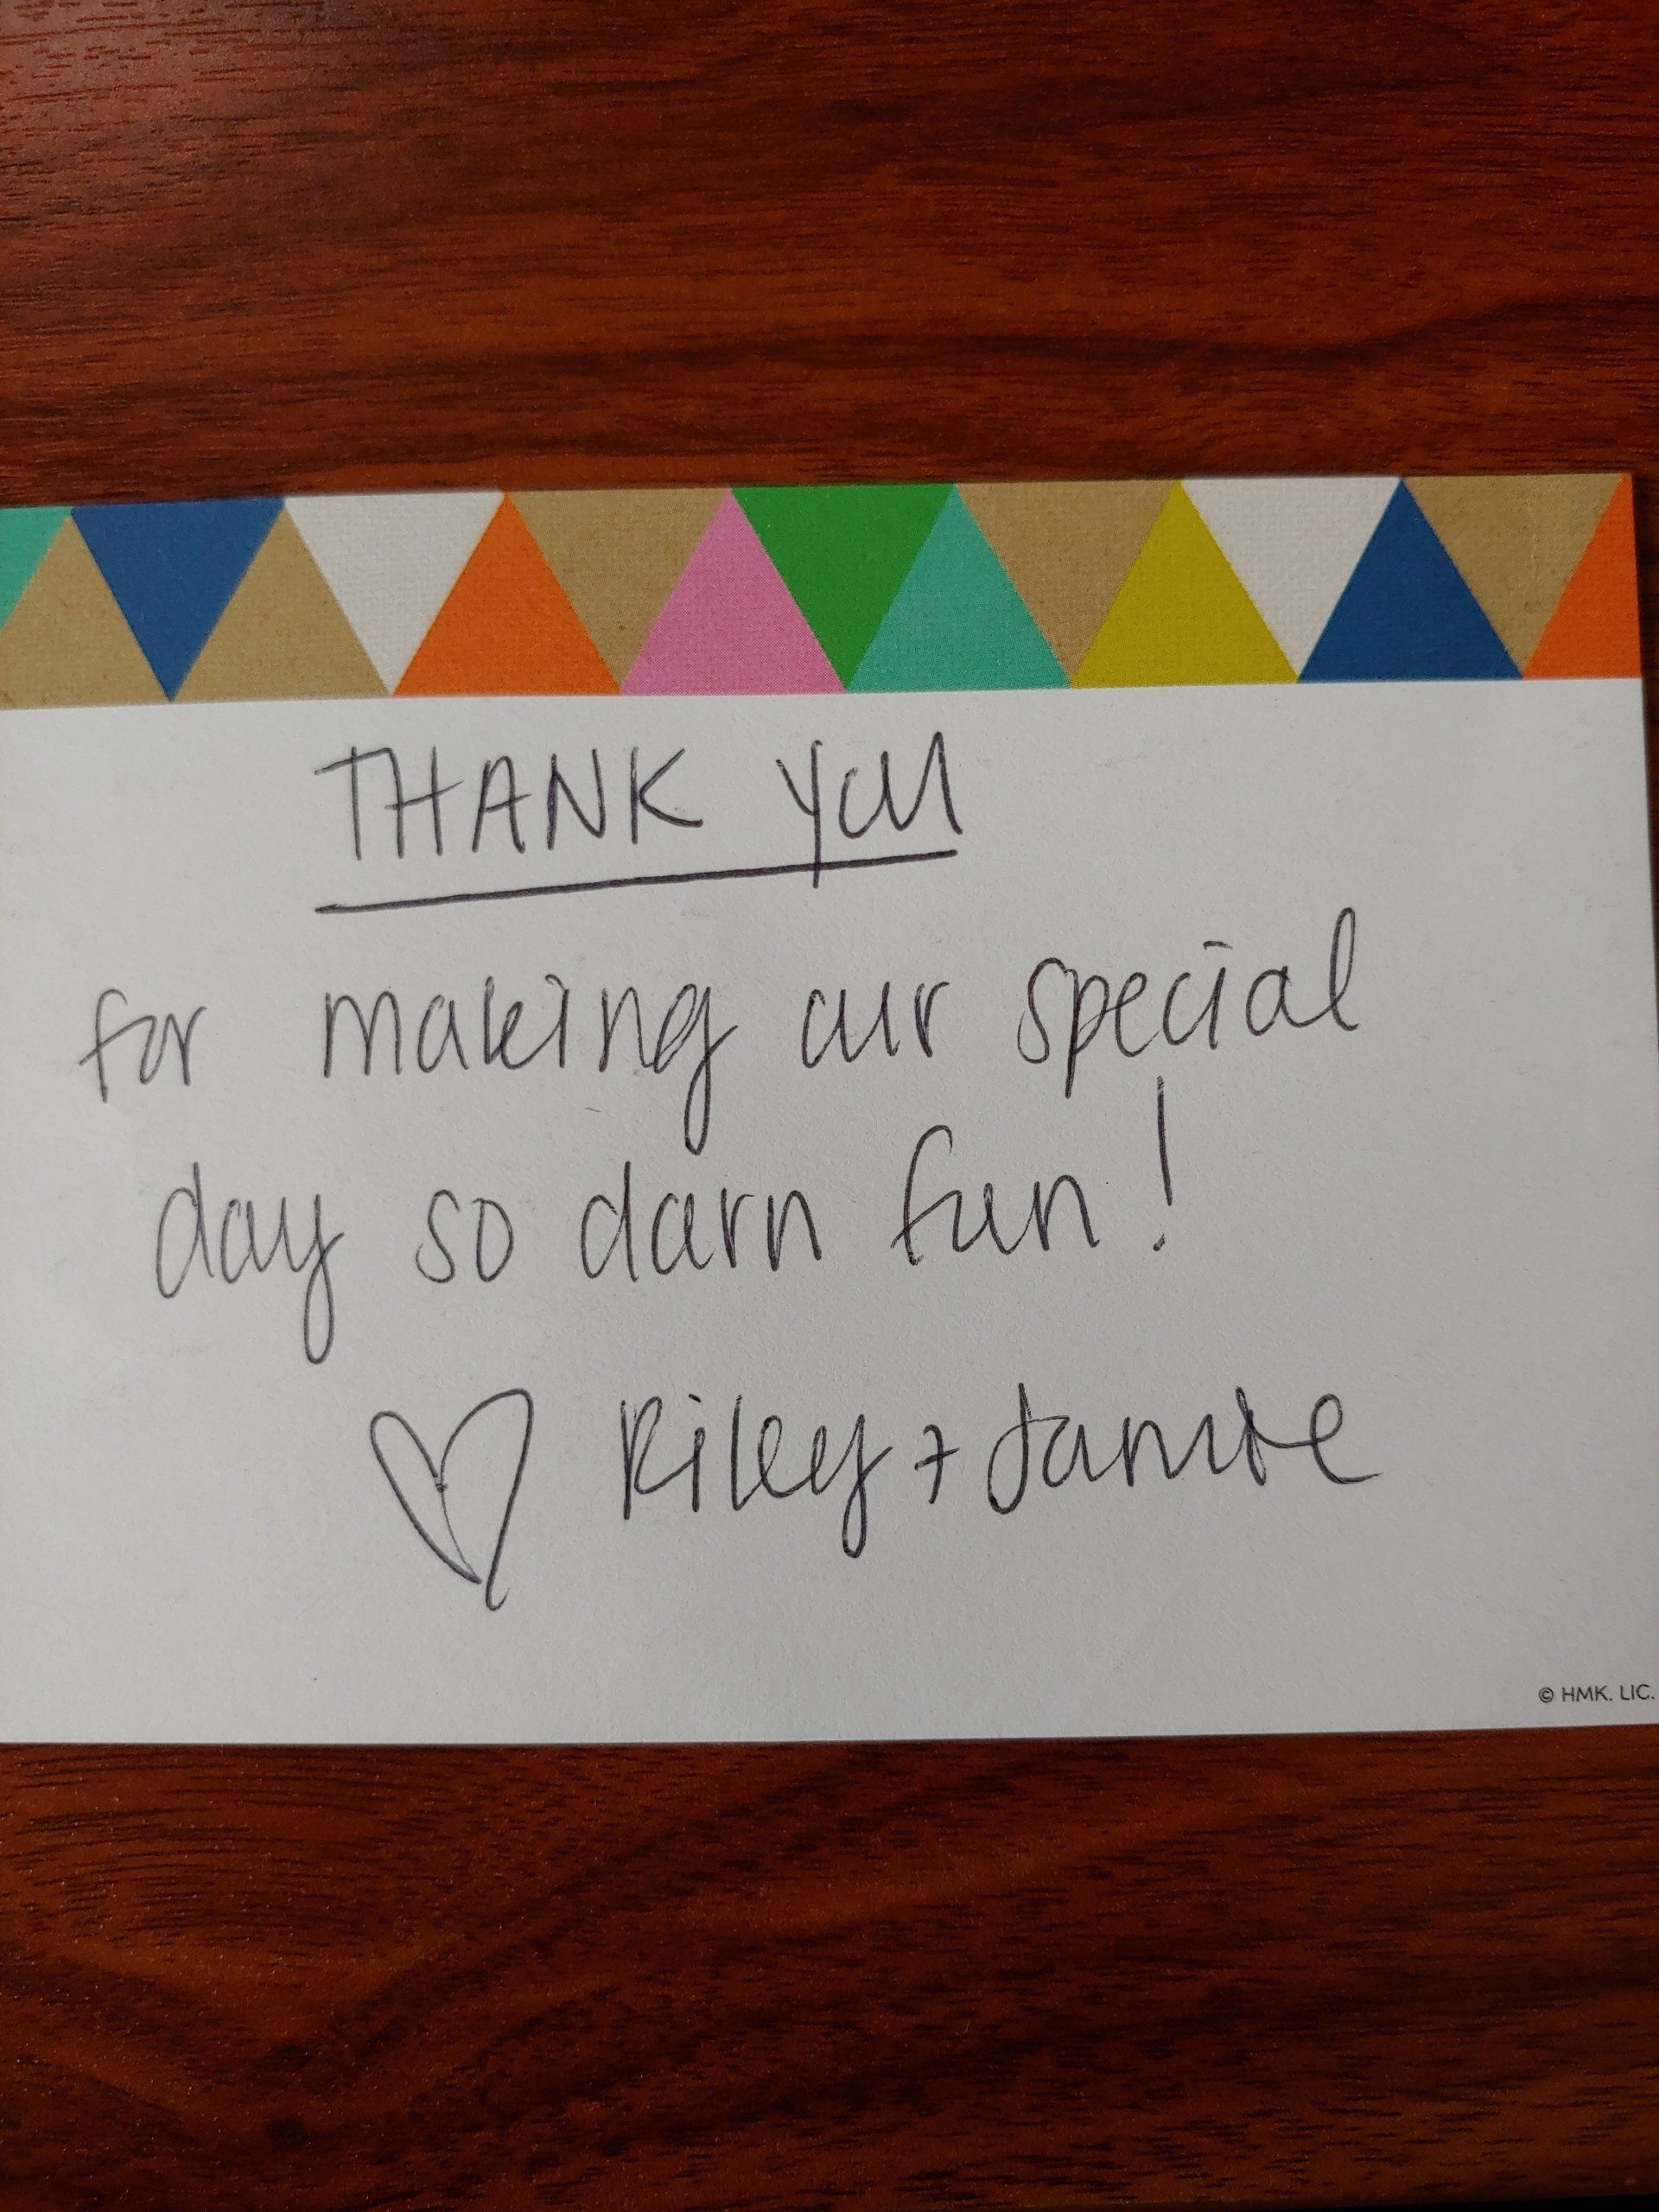 THANK YOU
for making our special
day so darn fun!
♡ Riley + Jamie
© HMK. LIC.